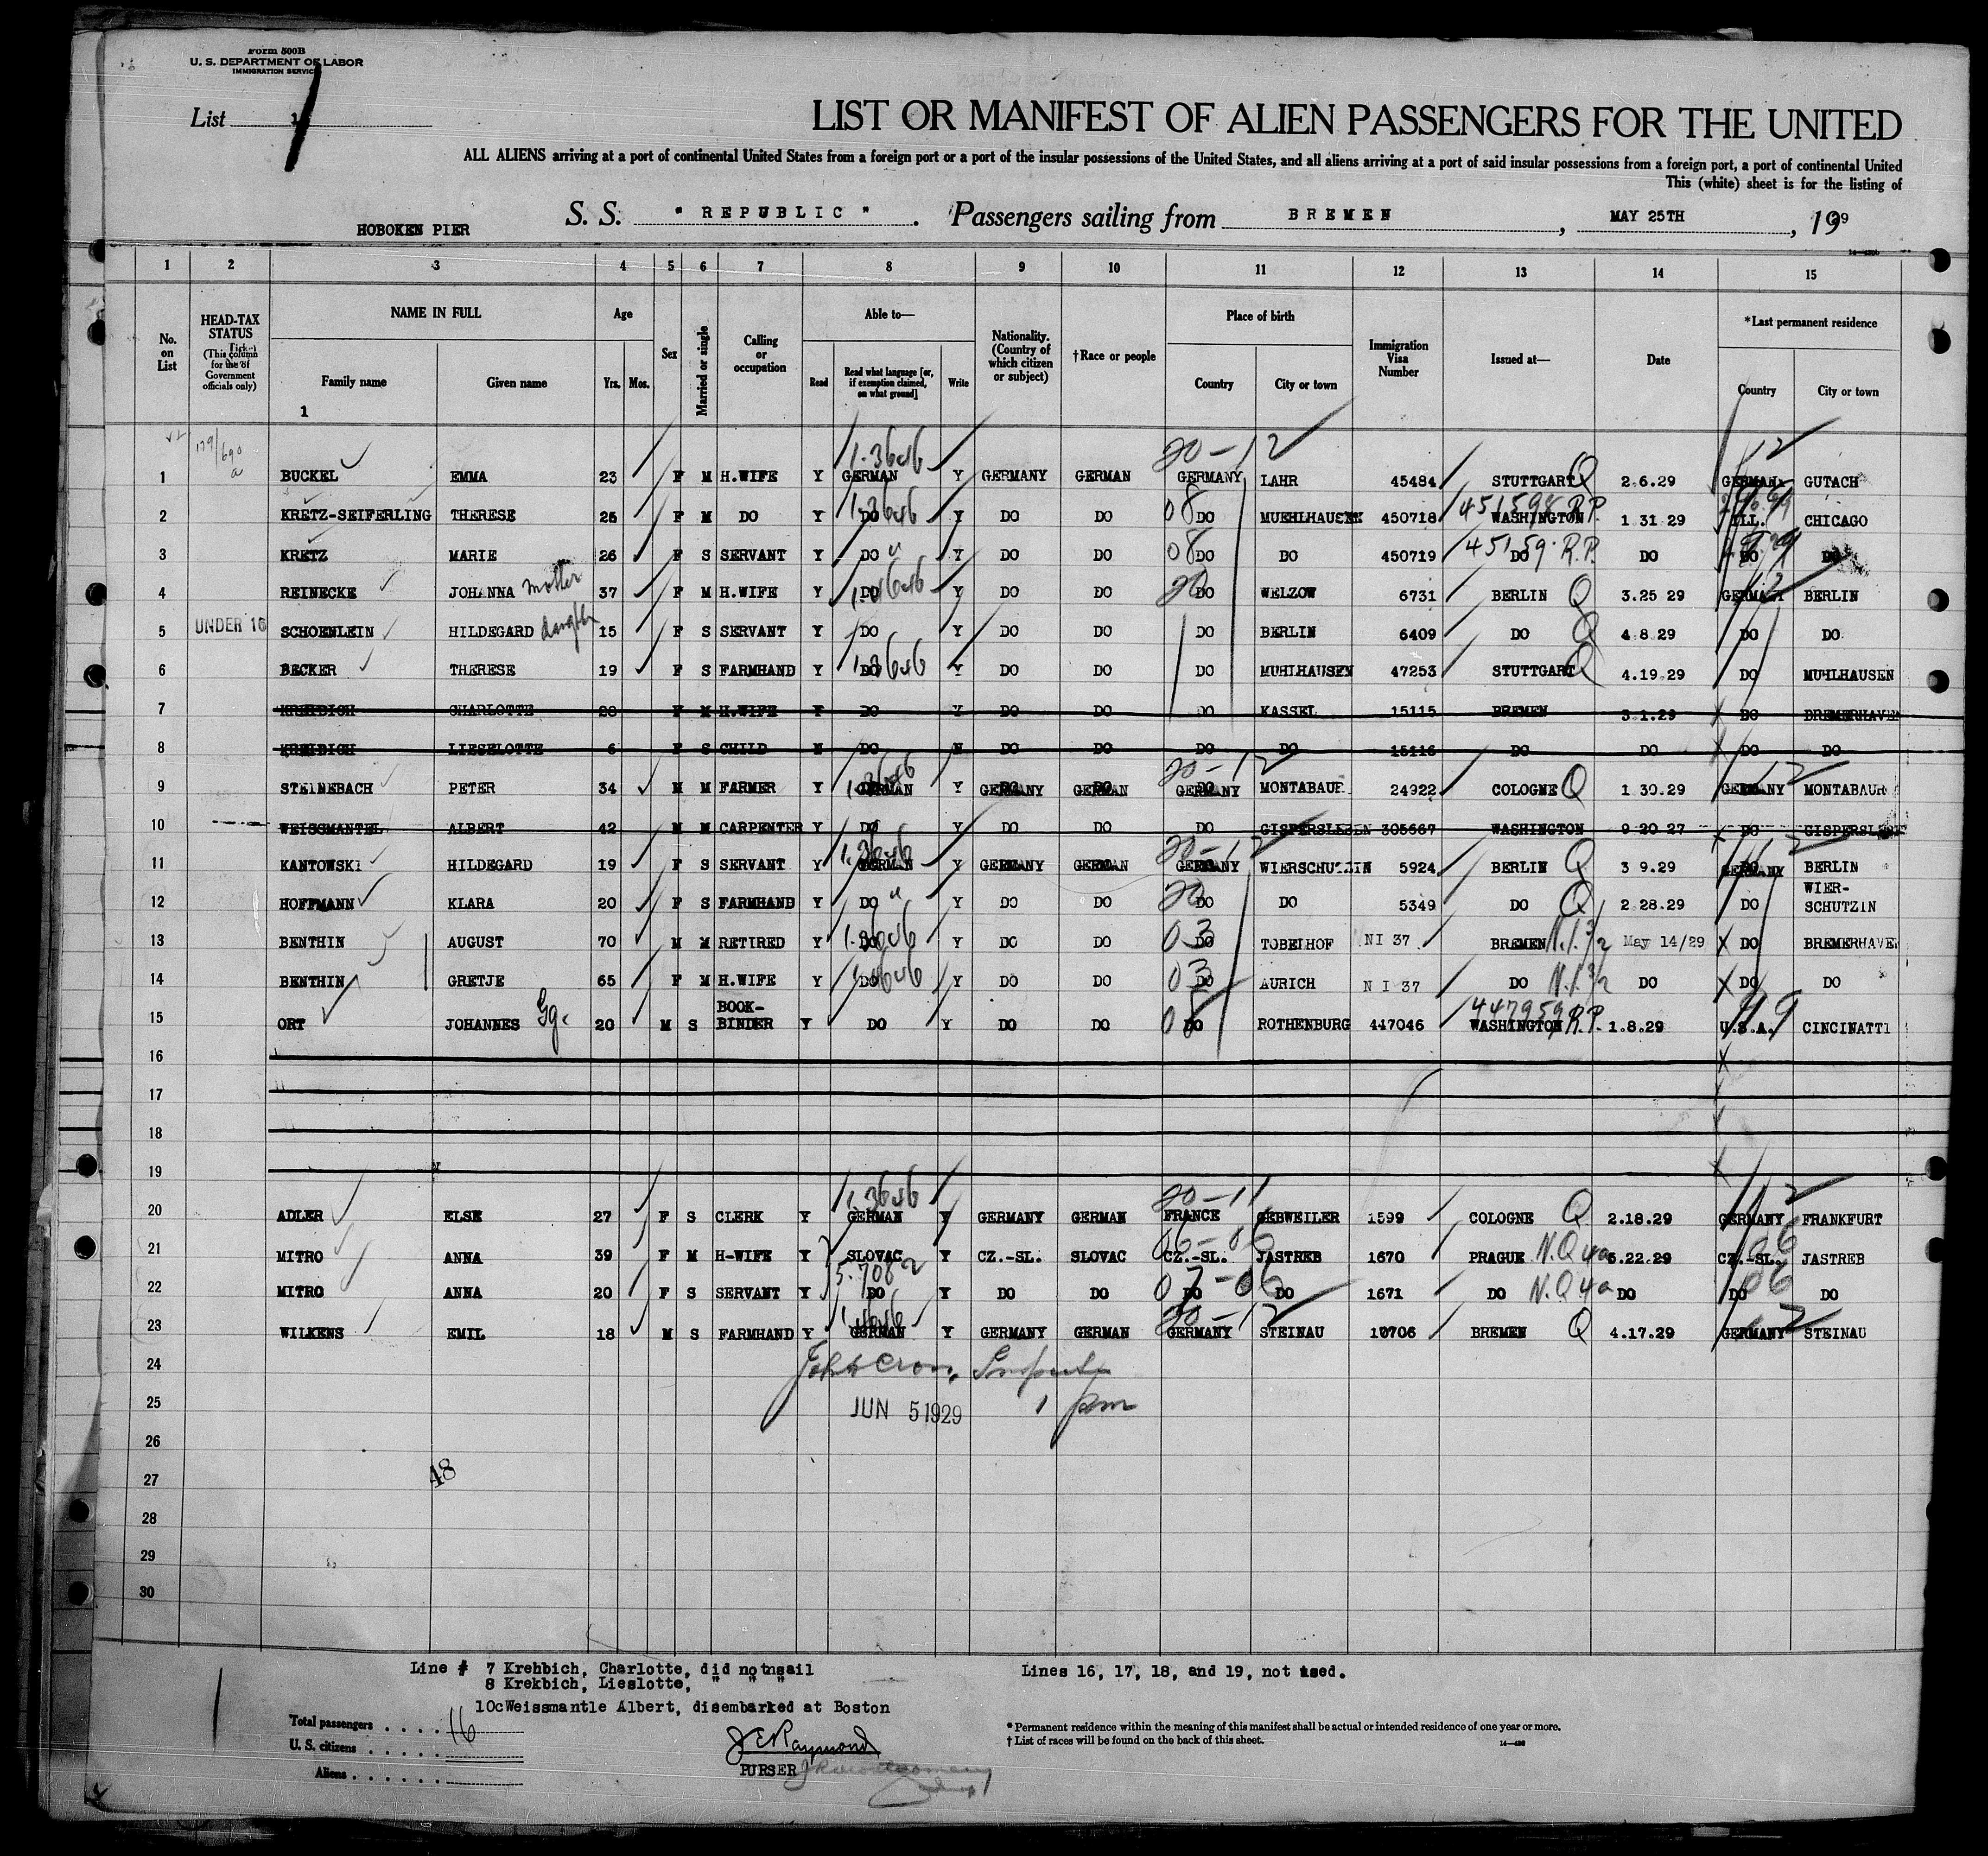 Form 500B
U. S. DEPARTMENT OF LABOR
IMMIGRATION SERVICE
List 1
LIST OR MANIFEST OF ALIEN PASSENGERS FOR THE UNITED
ALL ALIENS arriving at a port of continental United States from a foreign port or a port of the insular possessions of the United States, and all aliens arriving at a port of said insular possessions from a foreign port, a port of continental United
This (white) sheet is for the listing of
HOBOKEN PIER S. S. " REPUBLIC ". Passengers sailing from BREMEN, MAY 25TH, 1929
1 2 3 4 5 6 7 8 9 10 11 12 13 14 15
No. on List
HEAD-TAX STATUS (This column for use of Government officials only)
NAME IN FULL
Family name Given name
Age
Yrs. Mos.
Sex
Married or single
Calling or occupation
Able to—
Read Read what language [or, if exemption claimed, on what ground] Write
Nationality. (Country of which citizen or subject)
†Race or people
Place of birth
Country City or town
Immigration Visa Number
Issued at—
Date
*Last permanent residence
Country City or town
1
1 BUCKEL EMMA 23 F M H.WIFE Y GERMAN Y GERMANY GERMAN GERMANY LAHR 45484 STUTTGART Q 2.6.29 GERMANY GUTACH
2 KRETZ-SEIFERLING THERESE 25 F M DO Y DO Y DO DO DO MUEHLHAUSEN 450718 WASHINGTON R.P. 1 31 29 ILL. CHICAGO
3 KRETZ MARIE 26 F S SERVANT Y DO Y DO DO DO DO 450719 DO R.P. DO DO DO
4 REINECKE JOHANNA mother 37 F M H.WIFE Y DO Y DO DO DO WELZOW 6731 BERLIN Q 3.25 29 GERMANY BERLIN
5 UNDER 16 SCHOENLEIN HILDEGARD daughter 15 F S SERVANT Y DO Y DO DO DO BERLIN 6409 DO Q 4.8.29 DO DO
6 BECKER THERESE 19 F S FARMHAND Y DO Y DO DO DO MUHLHAUSEN 47253 STUTTGART Q 4.19.29 DO MUHLHAUSEN
7 CHARLOTTE F M H.WIFE Y DO Y DO DO DO KASSEL 15115 BREMEN 3.1.29 DO BREMERHAVEN
8 LIESELOTTE 6 F S CHILD N DO N DO DO DO DO 15116 DO DO DO DO
9 STEINEBACH PETER 34 M M FARMER Y GERMAN Y GERMANY GERMAN GERMANY MONTABAUR 24922 COLOGNE Q 1 30.29 GERMANY MONTABAUR
10 WEISSMANTEL ALBERT 42 M M CARPENTER Y DO Y DO DO DO GISPERSLEBEN 305667 WASHINGTON 9 20 27 DO
11 KANTOWSKI HILDEGARD 19 F S SERVANT Y GERMAN Y GERMANY GERMAN GERMANY WIERSCHUTZIN 5924 BERLIN Q 3 9.29 GERMANY BERLIN
12 HOFFMANN KLARA 20 F S FARMHAND Y DO Y DO DO DO DO 5349 DO Q 2.28.29 DO WIER-SCHUTZIN
13 BENTHIN AUGUST 70 M M RETIRED Y DO Y DO DO DO TOBELHOF NI 37 BREMEN May 14/29 DO BREMERHAVEN
14 BENTHIN GRETJE 65 F M H.WIFE Y DO Y DO DO DO AURICH N I 37 DO DO DO DO
15 ORT JOHANNES Gg. 20 M S BOOK-BINDER Y DO Y DO DO DO ROTHENBURG 447046 WASHINGTON R.P. 1.8.29 U.S.A. CINCINATTI
16
17
18
19
20 ADLER ELSE 27 F S CLERK Y GERMAN Y GERMANY GERMAN FRANCE GEBWEILER 1599 COLOGNE Q 2.18.29 GERMANY FRANKFURT
21 MITRO ANNA 39 F M H-WIFE Y SLOVAC Y CZ.-SL. SLOVAC CZ.-SL. JASTREB 1670 PRAGUE N.Q 4a 5.22.29 CZ.-SL. JASTREB
22 MITRO ANNA 20 F S SERVANT Y DO Y DO DO DO DO 1671 DO N.Q 4a DO DO DO
23 WILKENS EMIL 18 M S FARMHAND Y GERMAN Y GERMANY GERMAN GERMANY STEINAU 10706 BREMEN Q 4.17.29 GERMANY STEINAU
24
25 JUN 5 1929 1 pm
26
27 48
28
29
30
Line # 7 Krehbich, Charlotte, did not sail
8 Krekbich, Lieslotte, " " "
10c Weissmantle Albert, disembarked at Boston
Lines 16, 17, 18, and 19, not used.
Total passengers . . . . 16
U. S. citizens . . . . .
Aliens . . . . . .
J E Raymond
PURSER
* Permanent residence within the meaning of this manifest shall be actual or intended residence of one year or more.
† List of races will be found on the back of this sheet.